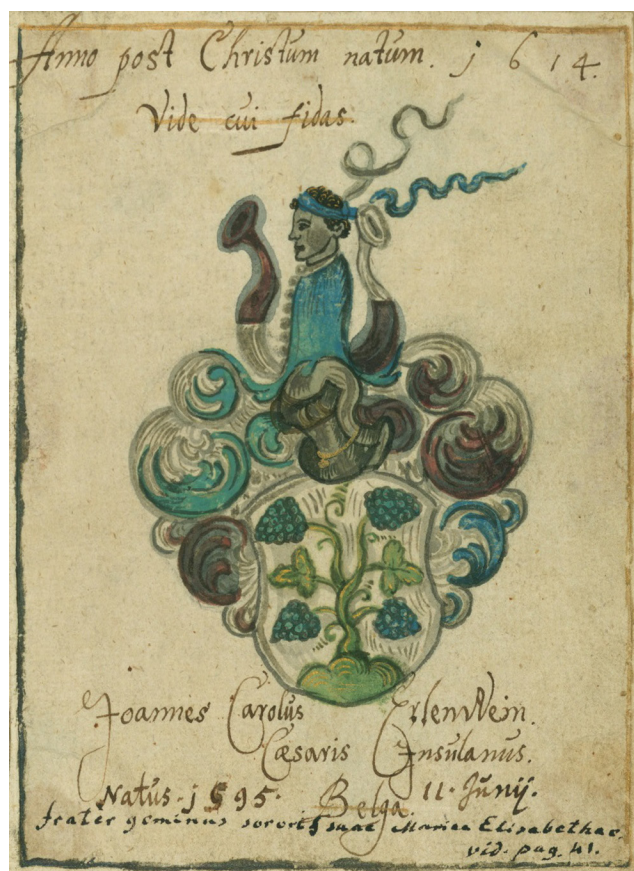 Anno post Christum natum. 1614.
Vide cui fidas.
Joannes Carolus Erlenwein.
Cæsaris Insulanus.
Natus. 1595. Belga. 11. Junij.
frater geminus sororis suae Mariae Elisabethae.
vid. pag. 41.